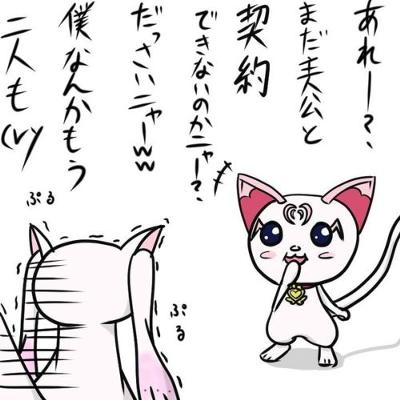 あれー?、
まだ主人公と
契約
できないのかニャー?、
だっさいニャーww
僕なんかもう
二人も(V)
ぷる
ぷる